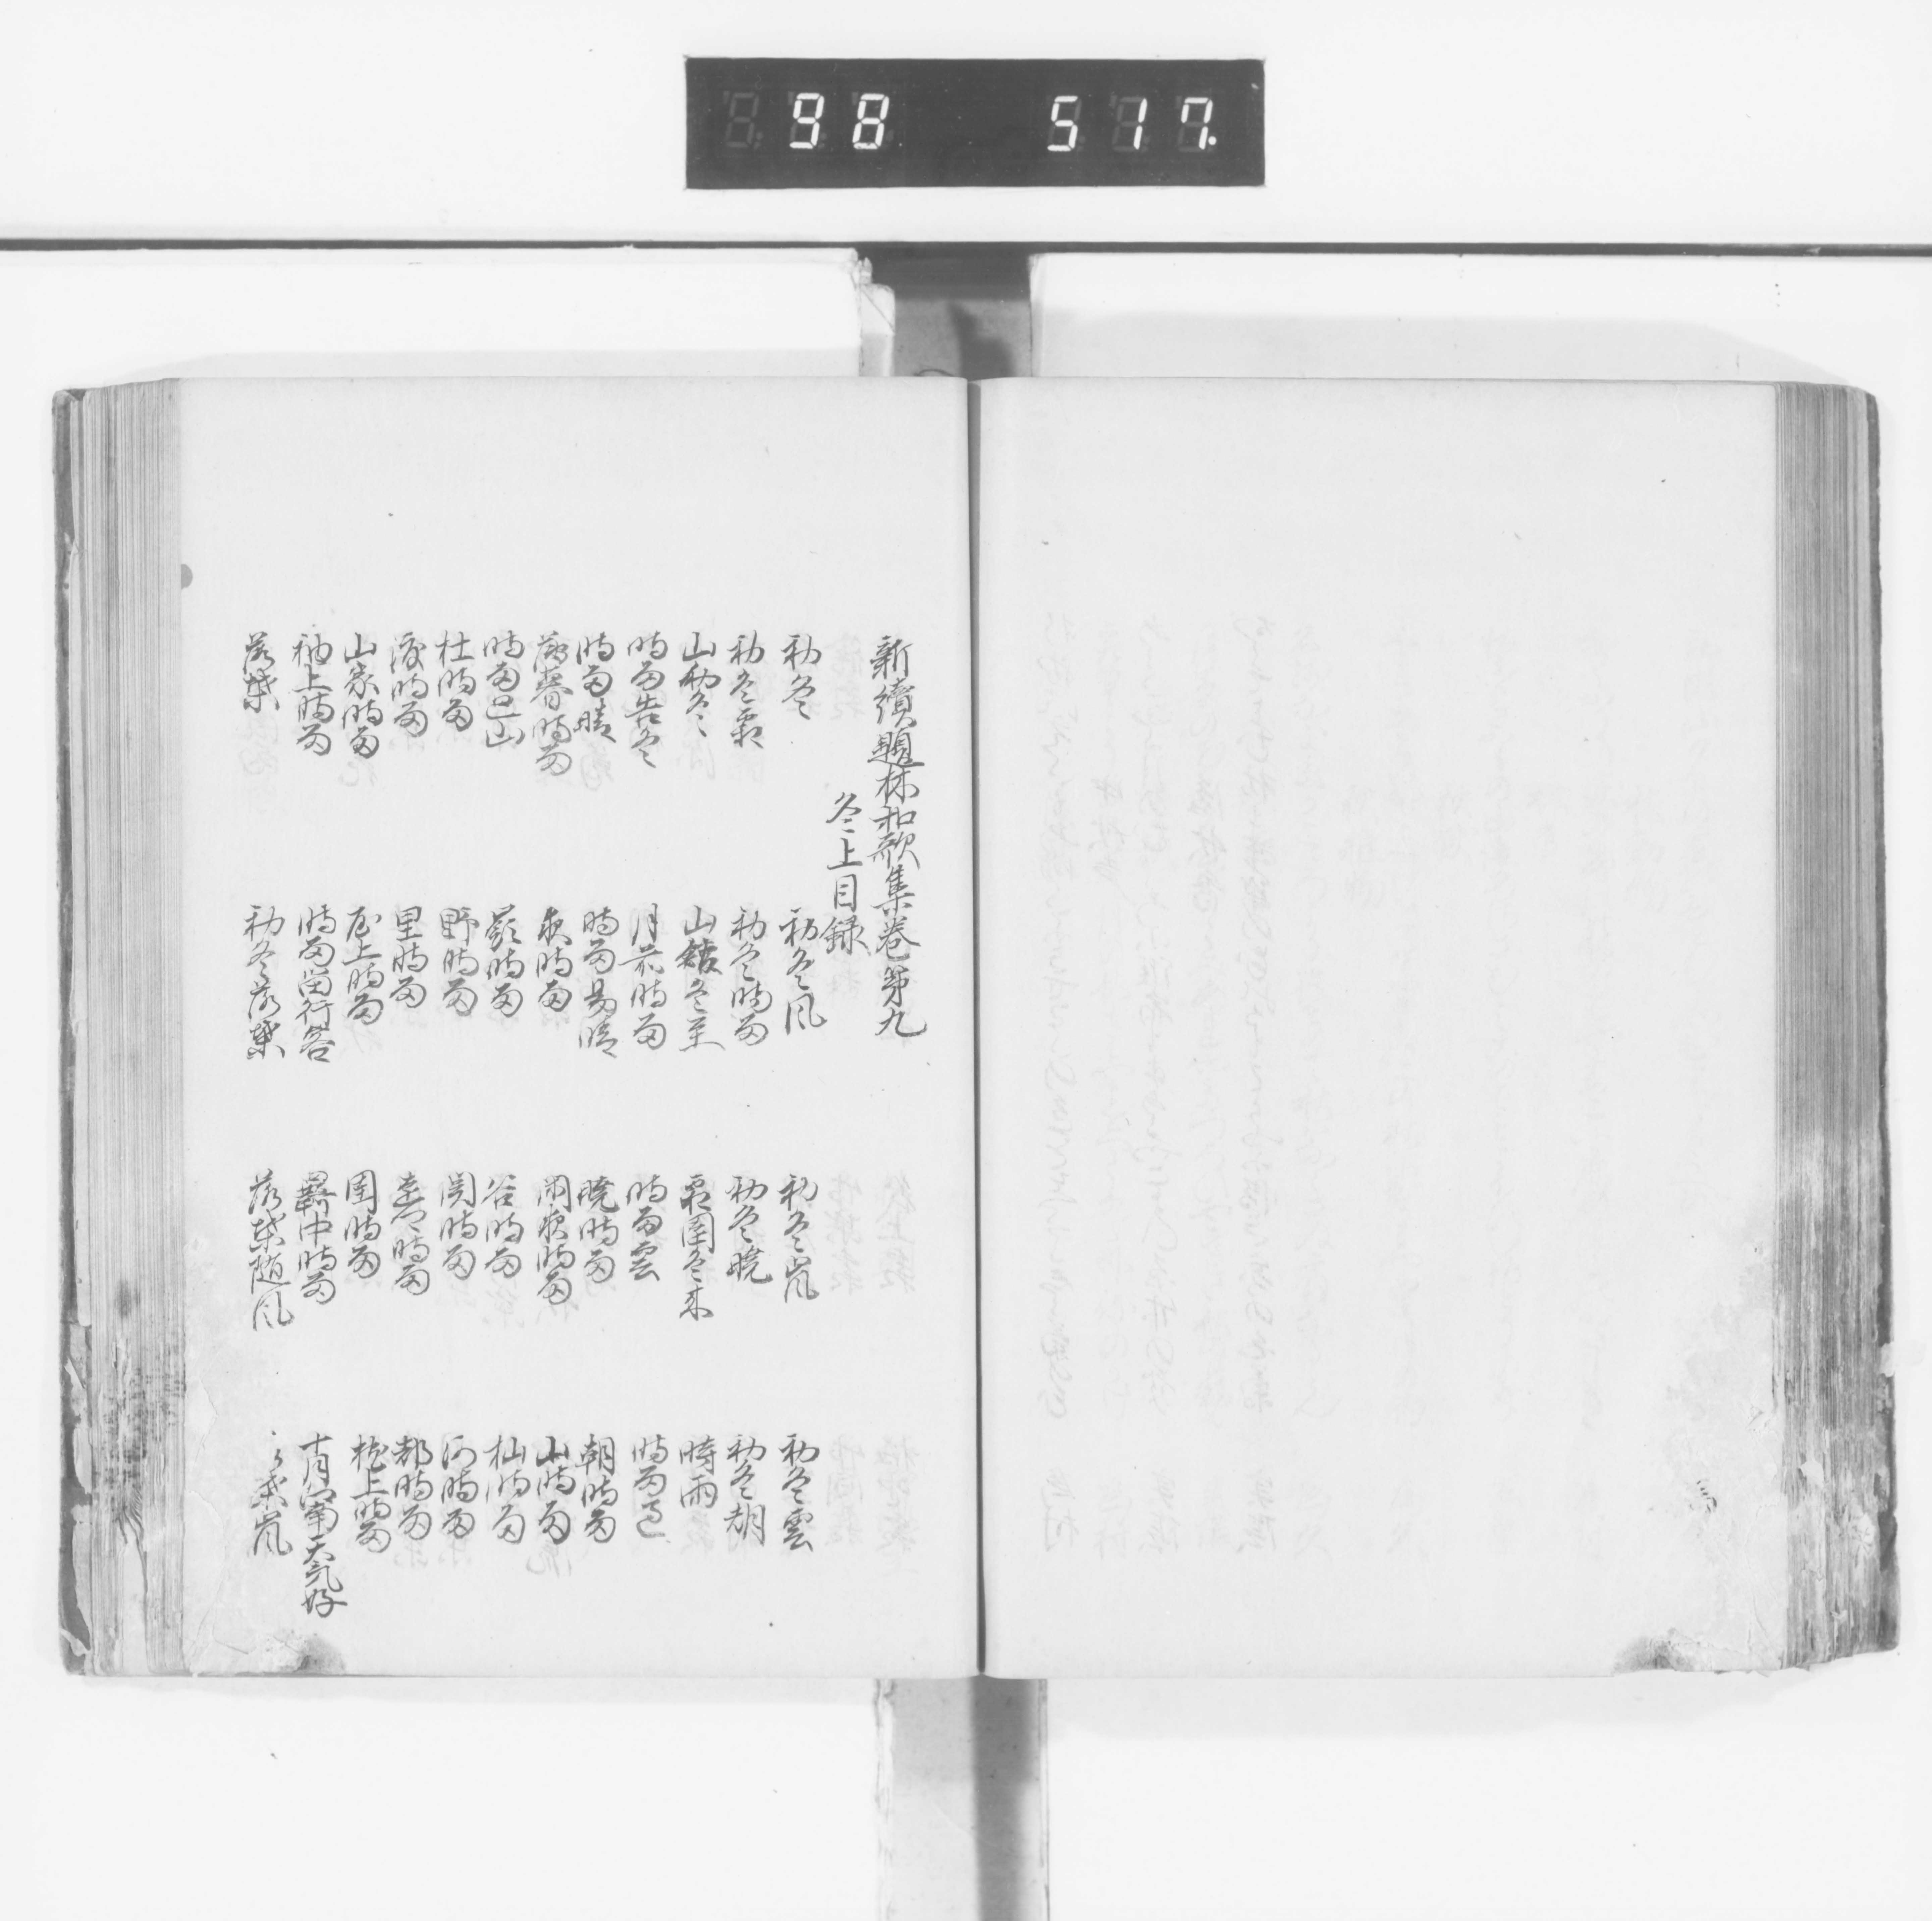 98 517.
新續題林和歌集巻第九
冬上目録
初冬 初冬風 初冬嵐 初冬雲
初冬霜 初冬時雨 初冬暁 初冬朝
山初冬 山館冬至 霜園冬来 時雨
時雨告冬 月前時雨 時雨雲 時雨過
時雨晴 時雨易晴 暁時雨 朝時雨
薄暮時雨 夜時雨 閑夜時雨 山時雨
時雨是山 嶺時雨 谷時雨 杣時雨
杜時雨 野時雨 関時雨 河時雨
渡時雨 里時雨 遠近時雨 都時雨
山家時雨 屋上時雨 閨時雨 枕上時雨
袖上時雨 時雨留行客 羇中時雨 十月江南天気好
落葉 初冬落葉 落葉随風 〻葉嵐